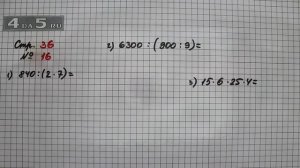 4DA5.RU
Стр. 36
№ 16
1) 840:(2·7)=
2) 6300:(900:9)=
3) 15·6·25·4=